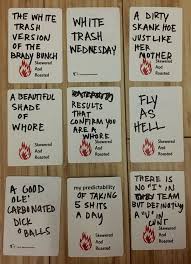 THE WHITE
TRASH
VERSION OF
THE BRADY BUNCH
Skewered
And
Roasted
WHITE
TRASH
WEDNESDAY
A DIRTY
SKANK HOE
JUST LIKE
HER
MOTHER
Skewered
And
Roasted
A BEAUTIFUL
SHADE
OF
WHORE
Skewered
And
Roasted
RESULTS
THAT
CONFIRM YOU
ARE A
WHORE
Skewered
And
Roasted
FLY
AS
HELL
Skewered
And
Roasted
A GOOD
OLE'
CARBONATED
DICK
BALLS
my predictability
OF TAKING
5 SHITS
A DAY
Skewered
And
Roasted
THERE IS
NO "I" IN
TEAM
BUT DEFINITLY
A "U" IN
CUNT
Skewered
And
Roasted